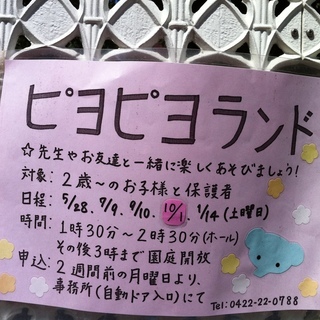 ピヨピヨランド
☆先生やお友達と一緒に楽しくあそびましょう!
対象：2歳〜のお子様と保護者
日程：5/28. 7/9. 9/10. 10/1. 1/14(土曜日)
時間：1時30分〜2時30分(ホール)
その後3時まで園庭開放
申込：2週間前の月曜日より、
事務所(自動ドア入口)にて
Tel:0422-22-0788